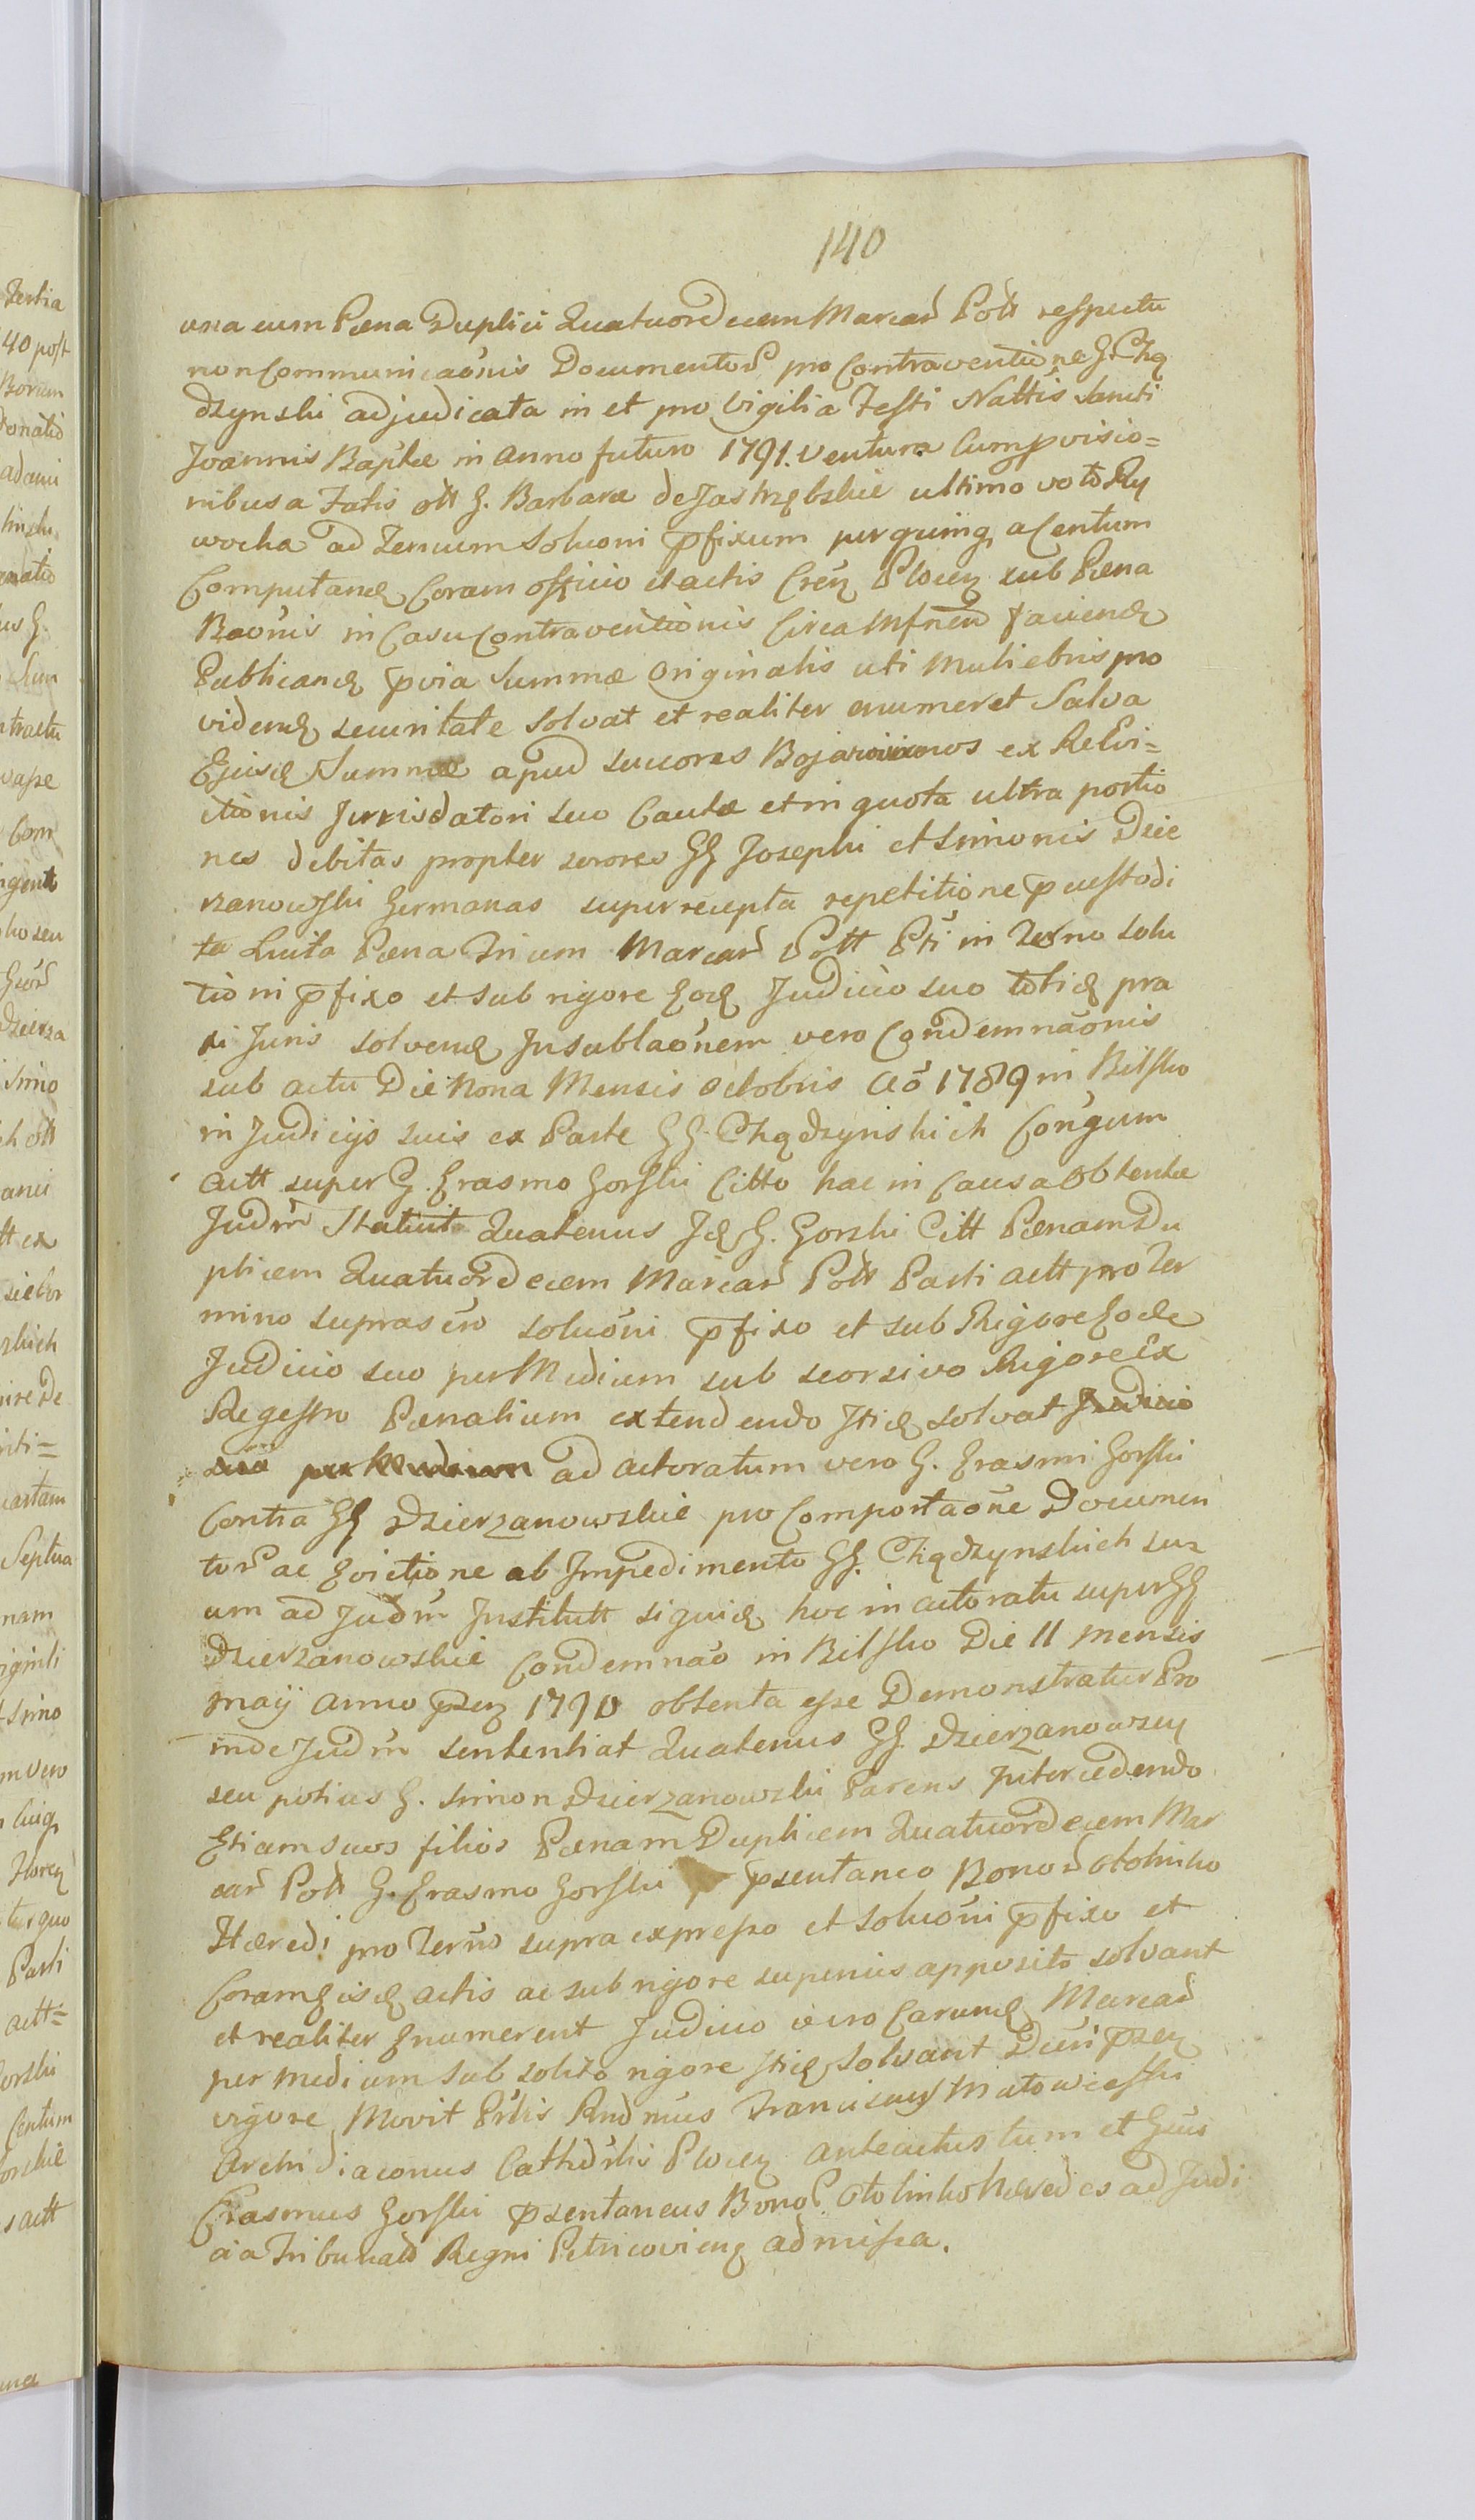 140
una cum Pæna Duplici Quatuordecem Marcar Poll respectu
non Communicaonis Documentor pro Contraventione G. Chą
dzynski adjudicata in et pro Vigilia Festi Nattis Sancti
Joannis Baptæ in Anno futuro 1791. Ventura Cum provisio=
nibus a Fatis ott G. Barbaræ de Jastrzębskie ultimo voto Ry
wocka ad Terminum Soluoni pfixum per quinq a Centum
Computand Coram officio et actis Cren Plocen sub Pæna
Baonis in Casu Contraventionis Circa Infnem faciend
Publicand pvia Summæ originalis uti Muliebris pro
vidend securitate solvat et realiter enumeret Salva
Ejusd Summæ apud succores Bojanowianos ex Relvi=
ctionis Jurrisdatori suo Cautæ et in quota ultra portio
nes debitas propter sorores GG Josephi et Simonis Dzie
rzanowski Germanas superrecepta repetitione pcustodi
ta Luita Pæna Trium Marcar Poll Pti in Termo solu
tioni pfixo et sub rigore Eod Judicio suo totid pra
xi Juris solvend In sublaonem vero Condemnaonis
sub actu Die Nona Mensis Octobris Ao 1789 in Bilsko
in Judicijs suis ex Parte GG. Chądzynskich Congum
Actt super G. Erasmo Gorski Citto hac in Causa Obtentæ
Judm Statuit Quatenus Id G. Gorski Citt Pænam Du
plicem Quatuordecem Marcar Poll Parti actt pro Ter
mino suprascro soluoni pfixo et sub Rigore Eode
Judicio suo per Medium sub seorsivo Rigore Ex
Regestro Pænalium extendendo Itid solvat Judicio
suo per Medium ad actoratum vero G. Erasmi Gorski
Contra GG Dzierzanowskie pro Comportaone Documen
tor ac Evictione ab Impedimento GG. Chądzynskich su
um ad Judm Institutt siquid hoc in actoratu super GG
Dzierzanowskie Condemnao in Bilsko Die 11 Mensis
Maij Anno pzen 1790 obtenta esse Demonstratur Pro
inde Judm sententiat Quatenus GG. Dzierzanowscy
seu potius G. Simon Dzierzanowski Parens Intercedendo
Etiam suos filios Pænam Duplicem Quatuordecem Mar
car Poll G. Erasmo Gorski psentaneo Bonor Otolinko
Hæredi pro Termo supra expresso et Soluoni pfixo et
Coram Eisd actis ac sub rigore superius apposito solvant
et realiter Enumerent Judicio vero Earumd Marcar
per medium sub solito rigore Itid solvant Decri pzen
vigore Movit Prlis Rndmus Franciscus Matowieski
Archidiaconus Cathdrlis Plocen anteactus tum et Gnus
Erasmus Gorski psentaneus Bonor Otolinko Hæredes ad Judi
cia Tribunald Regni Petricovien admissa.